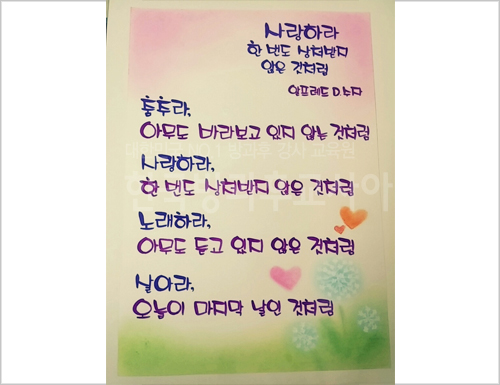 사랑하라
한 번도 상처받지
않은 것처럼
알프레드 D 수자
춤추라,
아무도 바라보고 있지 않는 것처럼
대한민국 NO.1 방과후 강사 교육원
사랑하라,
한 번도 상처받지 않은 것처럼
노래하라,
아무도 듣고 있지 않은 것처럼
살아라,
오늘이 마지막 날인 것처럼